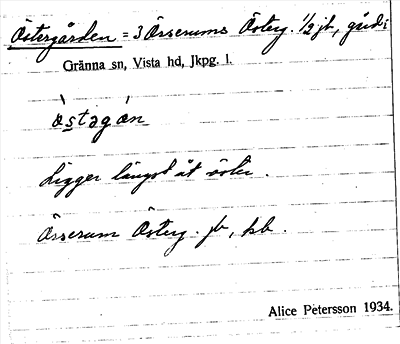 Östergården = 3 Örserums Österg. 1/2 jb, gård:
Gränna sn, Vista hd, Jkpg. l.
östəgån
Ligger längst åt öster.
Örserum Österg. jb, kb.
Alice Petersson 1934.